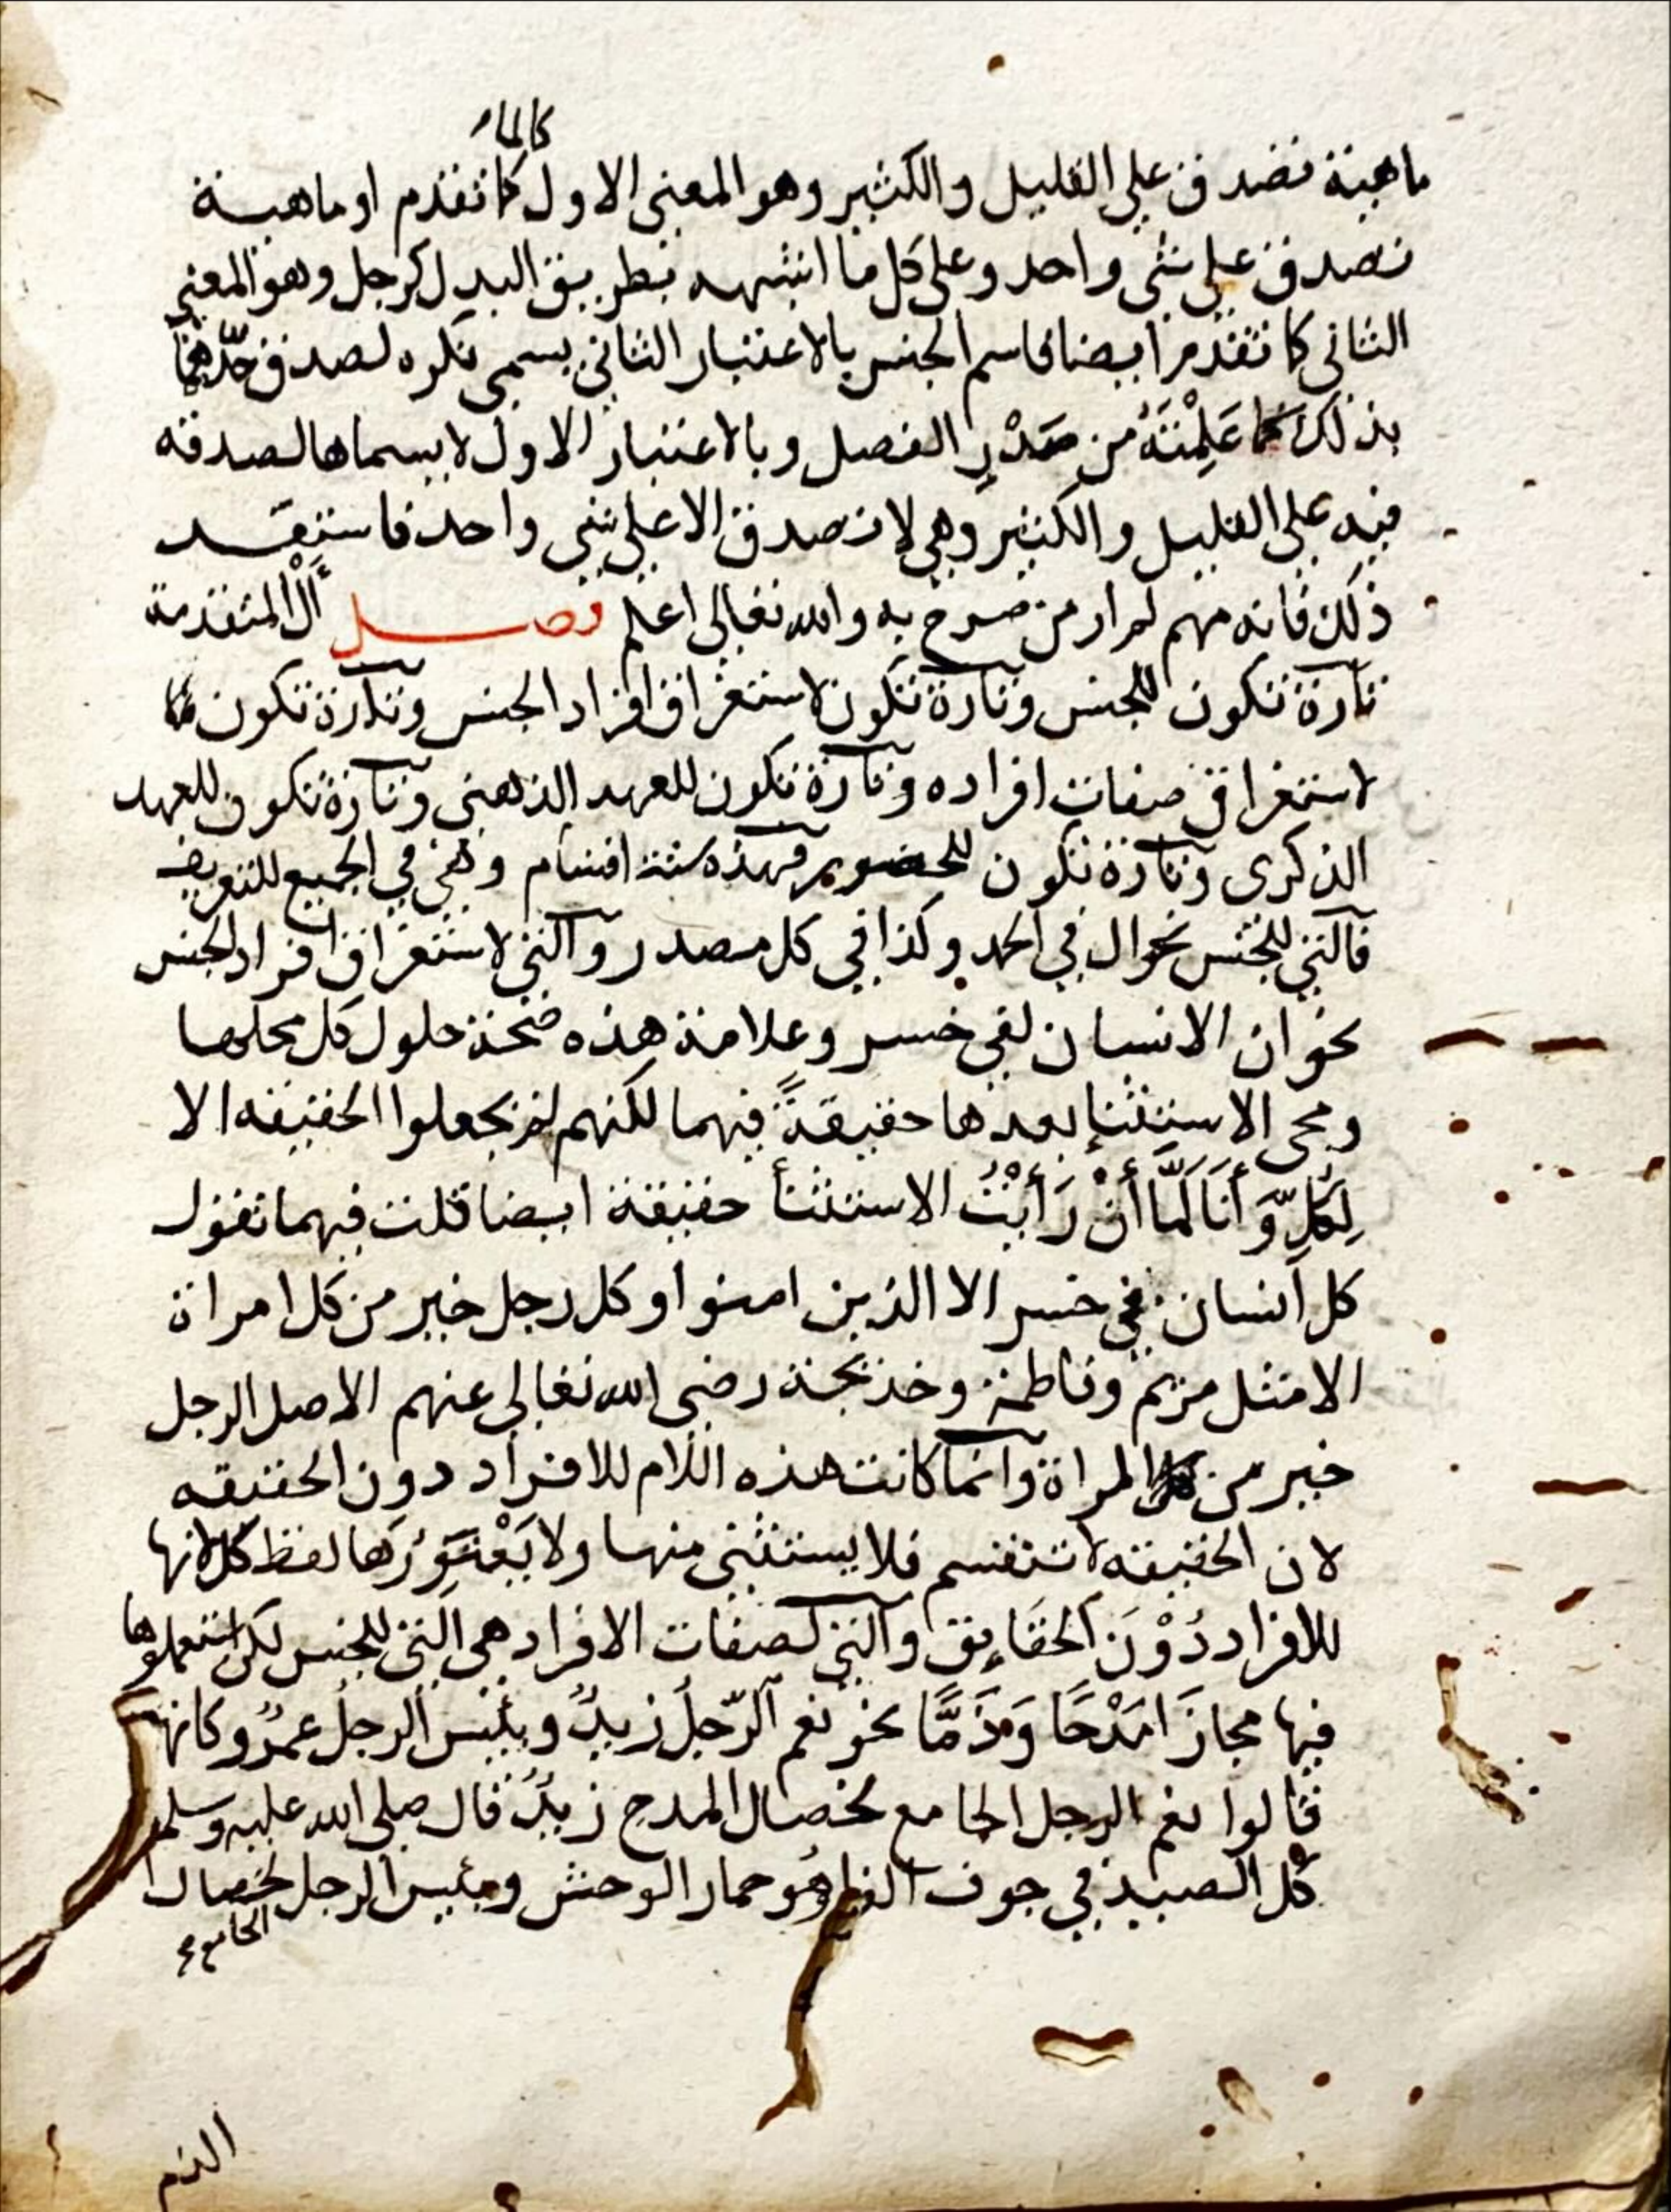 كالماء
ماهية تصدق على القليل والكثير وهو المعنى الاول كما تقدم او ماهية
تصدق على شي واحد وعلى كل ما اشبهه بطريق البدل كرجل وهو المعنى
الثاني كما تقدم ايضا فاسم الجنس بالاعتبار الثاني يسمى نكره لصدق حدها
بذلك كما علمته من صدر الفصل وبالاعتبار الاول لا يسماها لصدقه
فيه على القليل والكثير وهي لا تصدق الا على شي واحد فاستفد
ذلك فانه مهم لم ار من صرح به والله تعالى اعلم فصل أَلْ المتقدمة
تارة تكون للجنس وتارة تكون لاستغراق افراد الجنس وتارة تكون
لاستغراق صفات افراده وتارة تكون للعهد الذهني وتارة تكون للعهد
الذكرى وتارة تكون للحضور فهذه ستة اقسام وهي في الجميع للتعريف
فالتي للجنس نحو ال في الحمد وكذا في كل مصدر والتي لاستغراق افراد الجنس
نحو ان الانسان لفي خسر وعلامة هذه صحة حلول كل محلها
ومجى الاستثنا بعدها حقيقةً فيهما لكنهم لم يجعلوا الحقيقه الا
لِكُلٍّ وَأَنَا لَمَّا أَنْ رَأَيْتُ الاستثنأ حقيقة ايضا قلت فيهما تقول
كل انسان في خسر الا الذين امنوا وكل رجل خير من كل امراة
الا مثل مريم وفاطمة وخديجة رضى الله تعالى عنهم الاصل الرجل
خير من المراة وانما كانت هذه اللام للافراد دون الحقيقه
لان الحقيقه لا تنقسم فلا يستثنى منها ولا يَعْتَوِرُها لفظ كل لانها
للافراد دُوْنَ الحقَايق والتي لصفات الافراد هي التي للجنس لكن استعملوها
فيها مجازَا مَدْحًا وَذَمًّا نحو نعم الرّجلُ زيدٌ وبئيس الرجلُ عمرٌو كانهم
قالوا نعم الرجل الجامع لخصال المدح زيدٌ قال صلى الله عليه وسلم
كُل الصيد في جوف الفرا هُو حمار الوحش وبئيس الرجل لخصال
الجامع صح
الذم